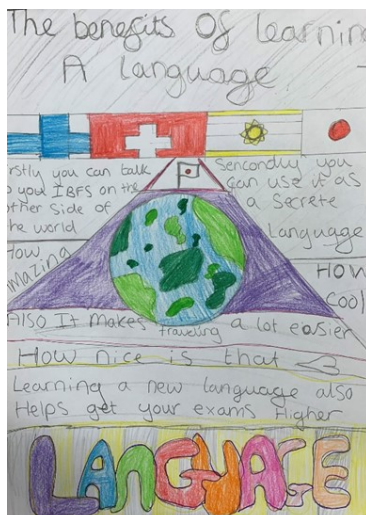 The benefits Of learnin
A language
rstly you can talk
o you IBFS on the
other Side of
the world
How
amazing
Sencondly you
can use it as
a Secrete
Language
HOW
Cool
Also It Makes traveling a lot easier
How nice is that
Learning a new language also
Helps get your exams Higher
LANGUAGE